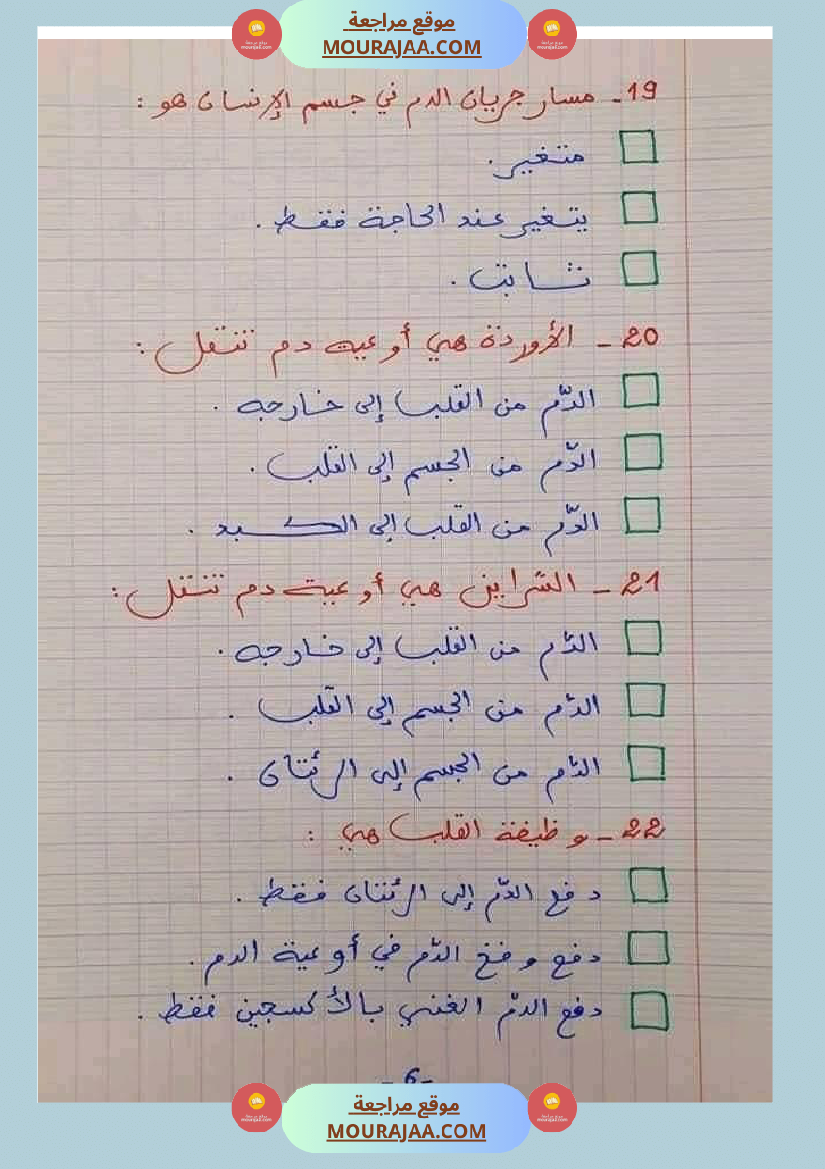 موقع مراجعة
MOURAJAA.COM
19- مسار جريان الدم في جسم الإنسان هو :
متغير.
يتغير عند الحاجة فقط.
ثابت.
20- الأوردة هي أوعية دم تنقل :
الدّم من القلب إلى خارجه.
الدّم من الجسم إلى القلب.
الدّم من القلب إلى الكبد.
21- الشرايين هي أوعية دم تنتقل :
الدّم من القلب إلى خارجه.
الدّم من الجسم إلى القلب.
الدّم من الجسم إلى الرئتان.
22- وظيفة القلب هي :
دفع الدّم إلى الرئتان فقط.
دفع وضخ الدّم في أوعية الدم.
دفع الدّم الغني بالأكسجين فقط.
-6-
موقع مراجعة
MOURAJAA.COM